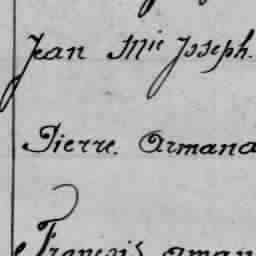 Jean Mie Joseph.
Pierre. Armand
François aman